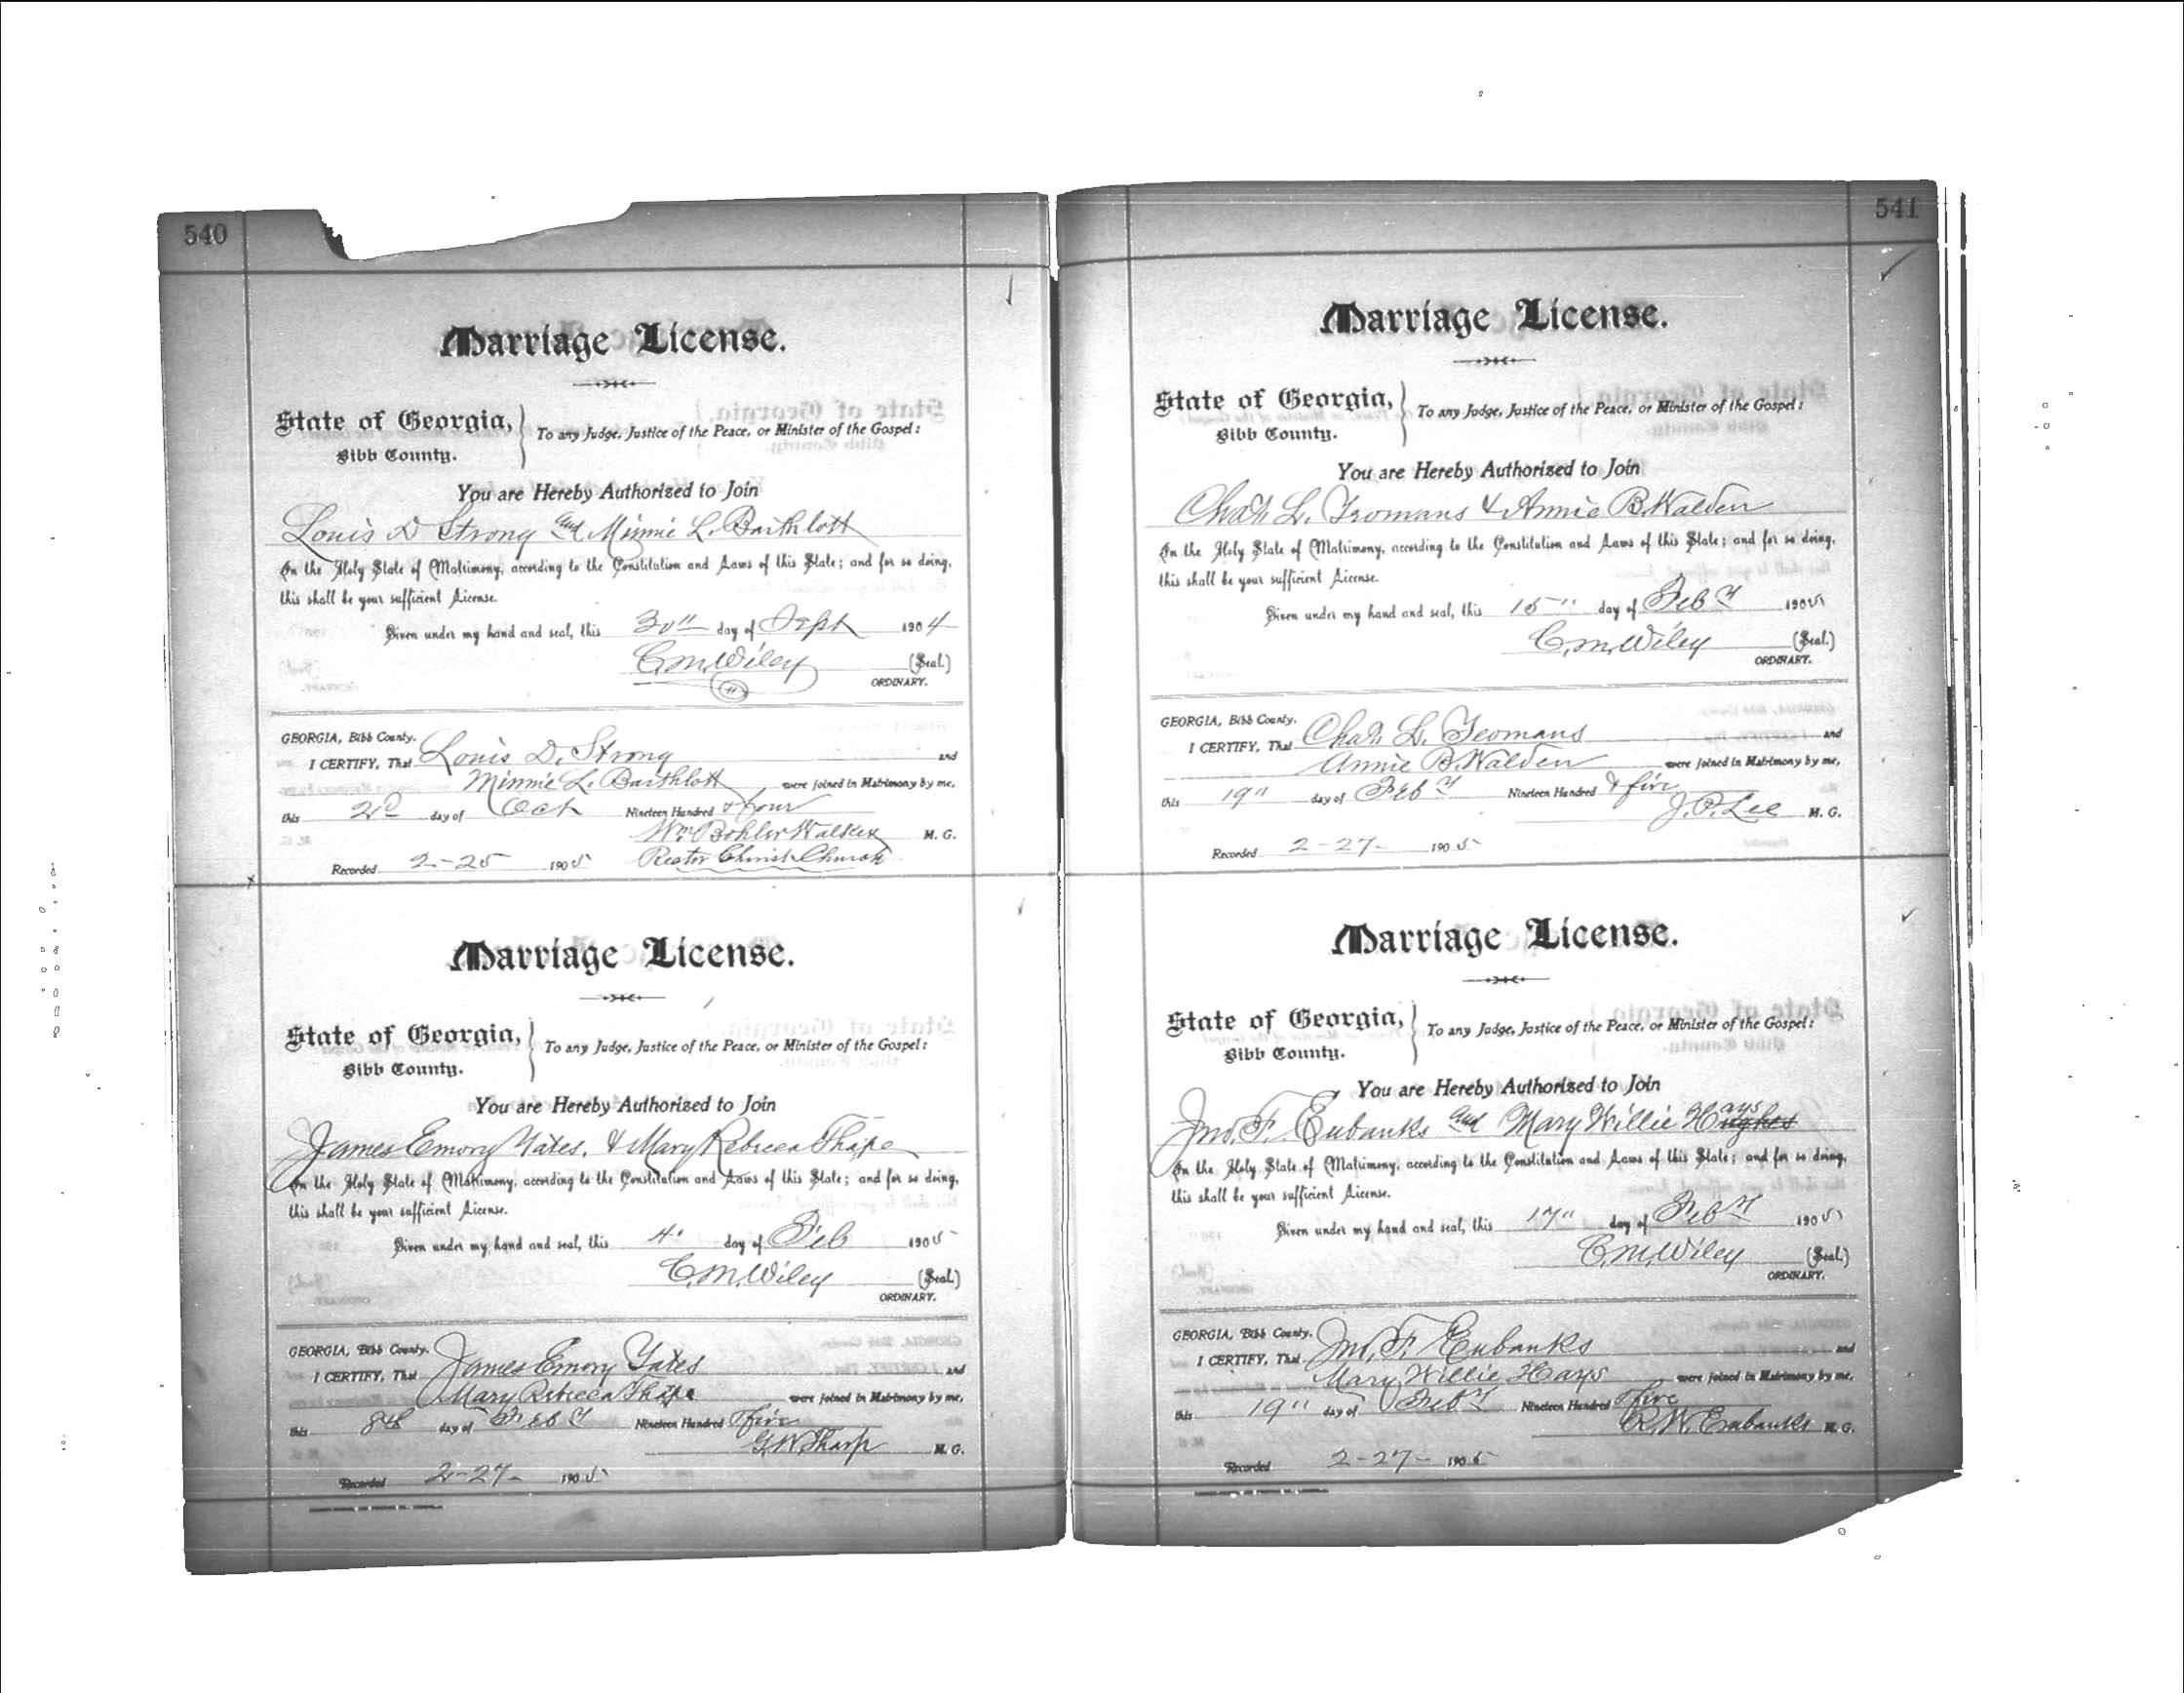 540
Marriage License.
State of Georgia,
Bibb County.
To any Judge, Justice of the Peace, or Minister of the Gospel:
You are Hereby Authorized to Join
Louis D Strong and Minnie L. Barthlott
In the Holy State of Matrimony, according to the Constitution and Laws of this State; and for so doing,
this shall be your sufficient License.
Given under my hand and seal, this 30" day of Sept 1904
C.M. Wiley (Seal.)
ORDINARY.
GEORGIA, Bibb County.
I CERTIFY, That Louis D. Strong and
Minnie L. Barthlott were joined in Matrimony by me,
this 2d day of Oct Nineteen Hundred & four
Wm Bohler Walker M. G.
Rector Christ Church
Recorded 2-25 1905
Marriage License.
State of Georgia,
Bibb County.
To any Judge, Justice of the Peace, or Minister of the Gospel:
You are Hereby Authorized to Join
James Emory Yates, & Mary Rebecca Tharpe
In the Holy State of Matrimony, according to the Constitution and Laws of this State; and for so doing,
this shall be your sufficient License.
Given under my hand and seal, this 4" day of Feb 1905
C.M. Wiley (Seal.)
ORDINARY.
GEORGIA, Bibb County.
I CERTIFY, That James Emory Yates and
Mary Rebecca were joined in Matrimony by me,
this 8th day of Feby Nineteen Hundred & five
G.W. Tharp M. G.
Recorded 2-27- 1905
541
Marriage License.
State of Georgia,
Bibb County.
To any Judge, Justice of the Peace, or Minister of the Gospel:
You are Hereby Authorized to Join
Chas. L. Yeomans & Annie B. Walden
In the Holy State of Matrimony, according to the Constitution and Laws of this State; and for so doing,
this shall be your sufficient License.
Given under my hand and seal, this 15" day of Feby 1905
C.M. Wiley (Seal.)
ORDINARY.
GEORGIA, Bibb County.
I CERTIFY, That Chas. L. Yeomans and
Annie B. Walden were joined in Matrimony by me,
this 19" day of Feby Nineteen Hundred & five
J.P. Lee M. G.
Recorded 2-27- 1905
Marriage License.
State of Georgia,
Bibb County.
To any Judge, Justice of the Peace, or Minister of the Gospel:
You are Hereby Authorized to Join
Jno. F. Eubanks and Mary Willie Hays
In the Holy State of Matrimony, according to the Constitution and Laws of this State; and for so doing,
this shall be your sufficient License.
Given under my hand and seal, this 17" day of Feby 1905
C.M. Wiley (Seal.)
ORDINARY.
GEORGIA, Bibb County.
I CERTIFY, That Jno. F. Eubanks and
Mary Willie Hays were joined in Matrimony by me,
this 19" day of Feby Nineteen Hundred & five
R.W. Eubanks M. G.
Recorded 2-27- 1905